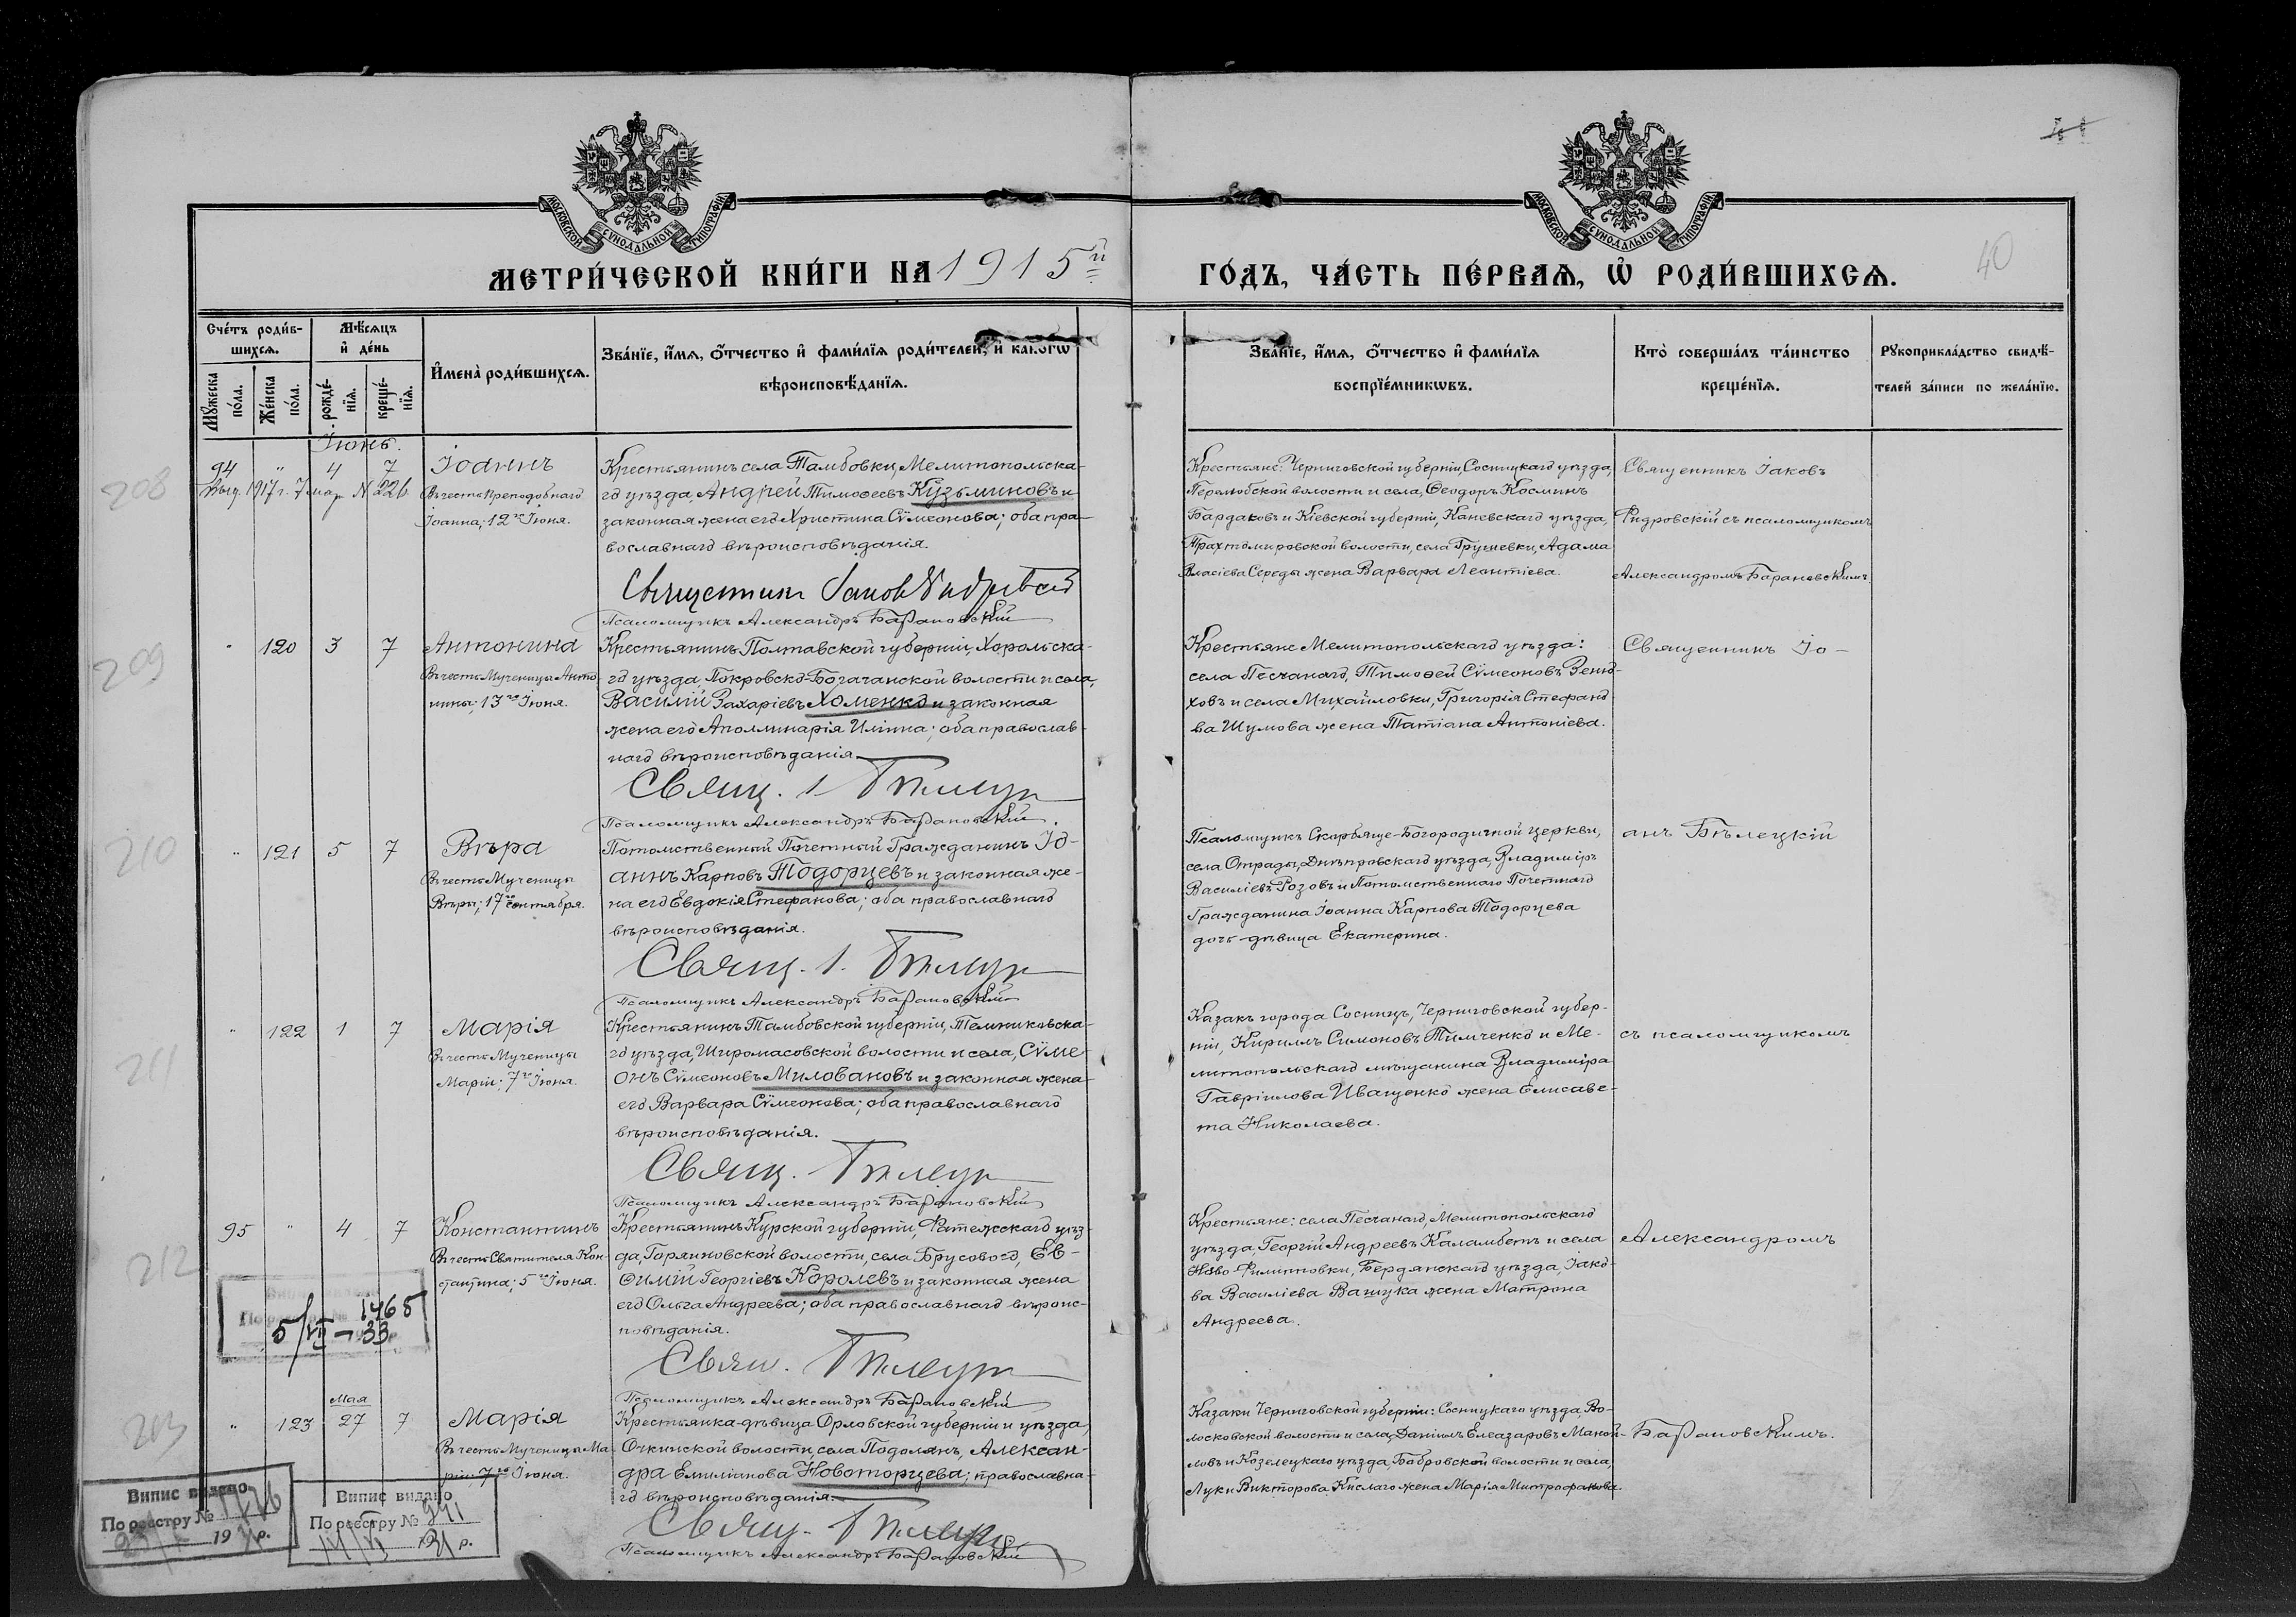 МОСКОВСКОЙ СѴНОДАЛЬНОЙ ТИПОГРАФІИ
МОСКОВСКОЙ СѴНОДАЛЬНОЙ ТИПОГРАФІИ
МЕТРИ́ЧЕСКОЙ КНИ́ГИ НА 1915й
ГО́ДЪ, ЧА́СТЬ ПЕ́РВАѦ, Ѡ҆ РОДИ́ВШИХСѦ.
40
Сче́тъ роди́в-
шихсѧ.
Мꙋжеска по́ла.
Же́нска по́ла.
Мѣ́сѧцъ
и҆ де́нь
рожде́-
нїѧ.
креще́-
нїѧ.
И҆мена̀ роди́вшихсѧ.
Зва́нїе, и҆́мѧ, ѻ҆́тчество и҆ фами́лїѧ роди́телей, и҆ какогѡ
вѣроисповѣ́данїѧ.
Зва́нїе, и҆́мѧ, ѻ҆́тчество и҆ фами́лїѧ
воспрїе́мникѡвъ.
Кто̀ соверша́лъ та́инство
креще́нїѧ.
Рꙋкоприкла́дство свидѣ́-
телей за́писи по жела́нїю.
Іюнь.
208
94 " 4 7 Іоаннъ
Выд. 1917 г. 7 мар. N 226
Въ честь Преподобнаго
Іоанна; 12го Іюня.
Крестьянинъ села Тамбовки, Мелитопольска-
го уѣзда, Андрей Тимоѳеевъ Кузьминовъ и
законная жена его Христина Сѵмеонова; оба пра-
вославнаго вѣроисповѣданія.
Священникъ Іаковъ
Псаломщикъ Александръ Барановскій
Крестьяне: Черниговской губерніи, Сосницкаго уѣзда,
Перелюбской волости и села, Ѳеодоръ Косминъ
Бардаковъ и Кіевской губерніи, Каневскаго уѣзда,
Трахтомировской волости, села Грушевки, Адама
Власіева Середы жена Варвара Леонтіева.
Священникъ Іаковъ
Фидровскій съ псаломщикомъ
Александромъ Барановскимъ
209
" 120 3 7 Антонина
Въ честь Мученицы Анто-
нины; 13го Іюня.
Крестьянинъ Полтавской губерніи, Хорольска-
го уѣзда Покровско-Богачанской волости и села,
Василій Захаріевъ Хоменко и законная
жена его Аполлинарія Иліина; оба православ-
наго вѣроисповѣданія
Свящ. І Бѣлецк
Псаломщикъ Александръ Барановскій.
Крестьяне Мелитопольскаго уѣзда:
села Песчанаго, Тимоѳей Сѵмеоновъ Зеню-
ховъ и села Михайловки, Григорія Стефано-
ва Шумова жена Татіана Антоніева.
Священникъ Іо-
210
" 121 5 7 Вѣра
Въ честь Мученицы
Вѣры; 17го Сентября.
Потомственный Почетный Гражданинъ Іо-
аннъ Карповъ Тодорцевъ и законная же-
на его Евдокія Стефанова; оба православнаго
вѣроисповѣданія.
Свящ. І. Бѣлецк
Псаломщикъ Александръ Барановскій
Псаломщикъ Скорбяще-Богородичной церкви,
села Отрады, Днѣпровскаго уѣзда, Владиміръ
Василіевъ Розовъ и Потомственнаго Почетнаго
Гражданина Іоанна Карпова Тодорцева
дочь-дѣвица Екатерина.
анъ Бѣлецкій
211
" 122 1 7 Марія
Въ честь Мученицы
Маріи; 7го Іюня.
Крестьянинъ Тамбовской губерніи, Темниковска-
го уѣзда, Широмасовской волости и села, Сѵме-
онъ Сѵмеоновъ Миловановъ и законная жена
его Варвара Сѵмеонова; оба православнаго
вѣроисповѣданія.
Свящ. Бѣлецк
Псаломщикъ Александръ Барановскій
Казакъ города Сосницъ, Черниговской губер-
ніи, Кириллъ Симоновъ Тимченко и Ме-
литопольскаго мѣщанина Владиміра
Гавріилова Иващенко жена Елисаве-
та Николаева.
съ псаломщикомъ
212
95 " 4 7 Константинъ
Въ честь Святителя Кон-
стантина; 5го Іюня.
Крестьянинъ Курской губерніи, Фатежскаго уѣз-
да, Горяиновской волости, села Брусового, Ев-
ѳимій Георгіевъ Королевъ и законная жена
его Ольга Андреева; оба православнаго вѣроис-
повѣданія.
1465
5/VII - 33
Свящ. Бѣлецк
Псаломщикъ Александръ Барановскій
Крестьяне: села Песчанаго, Мелитопольскаго
уѣзда, Георгій Андреевъ Каламбетъ и села
Ново-Филипповки, Бердянскаго уѣзда, Іако-
ва Василіева Вашука жена Матрона
Андреева.
Александромъ
213
Мая
" 123 27 7 Марія
Въ честь Мученицы Ма-
ріи; 7го Іюня.
Крестьянка-дѣвица Орловской губерніи и уѣзда,
Очкинской волости, села Подолянъ, Алексан-
дра Емиліанова Новоторцева; православна-
го вѣроисповѣданія.
Свящ. І Бѣлецк
Псаломщикъ Александръ Барановскій
Казаки Черниговской губерніи: Сосницкаго уѣзда, Во-
лосковской волости и села, Даніилъ Елеазаровъ Маной-
ловъ и Козелецкаго уѣзда, Бобровской волости и села,
Луки Викторова Кислаго жена Марія Митрофанова.
Барановскимъ.
Випис видано
По реєстру №
19 р.
Випис видано
По реєстру № 941
1931 р.